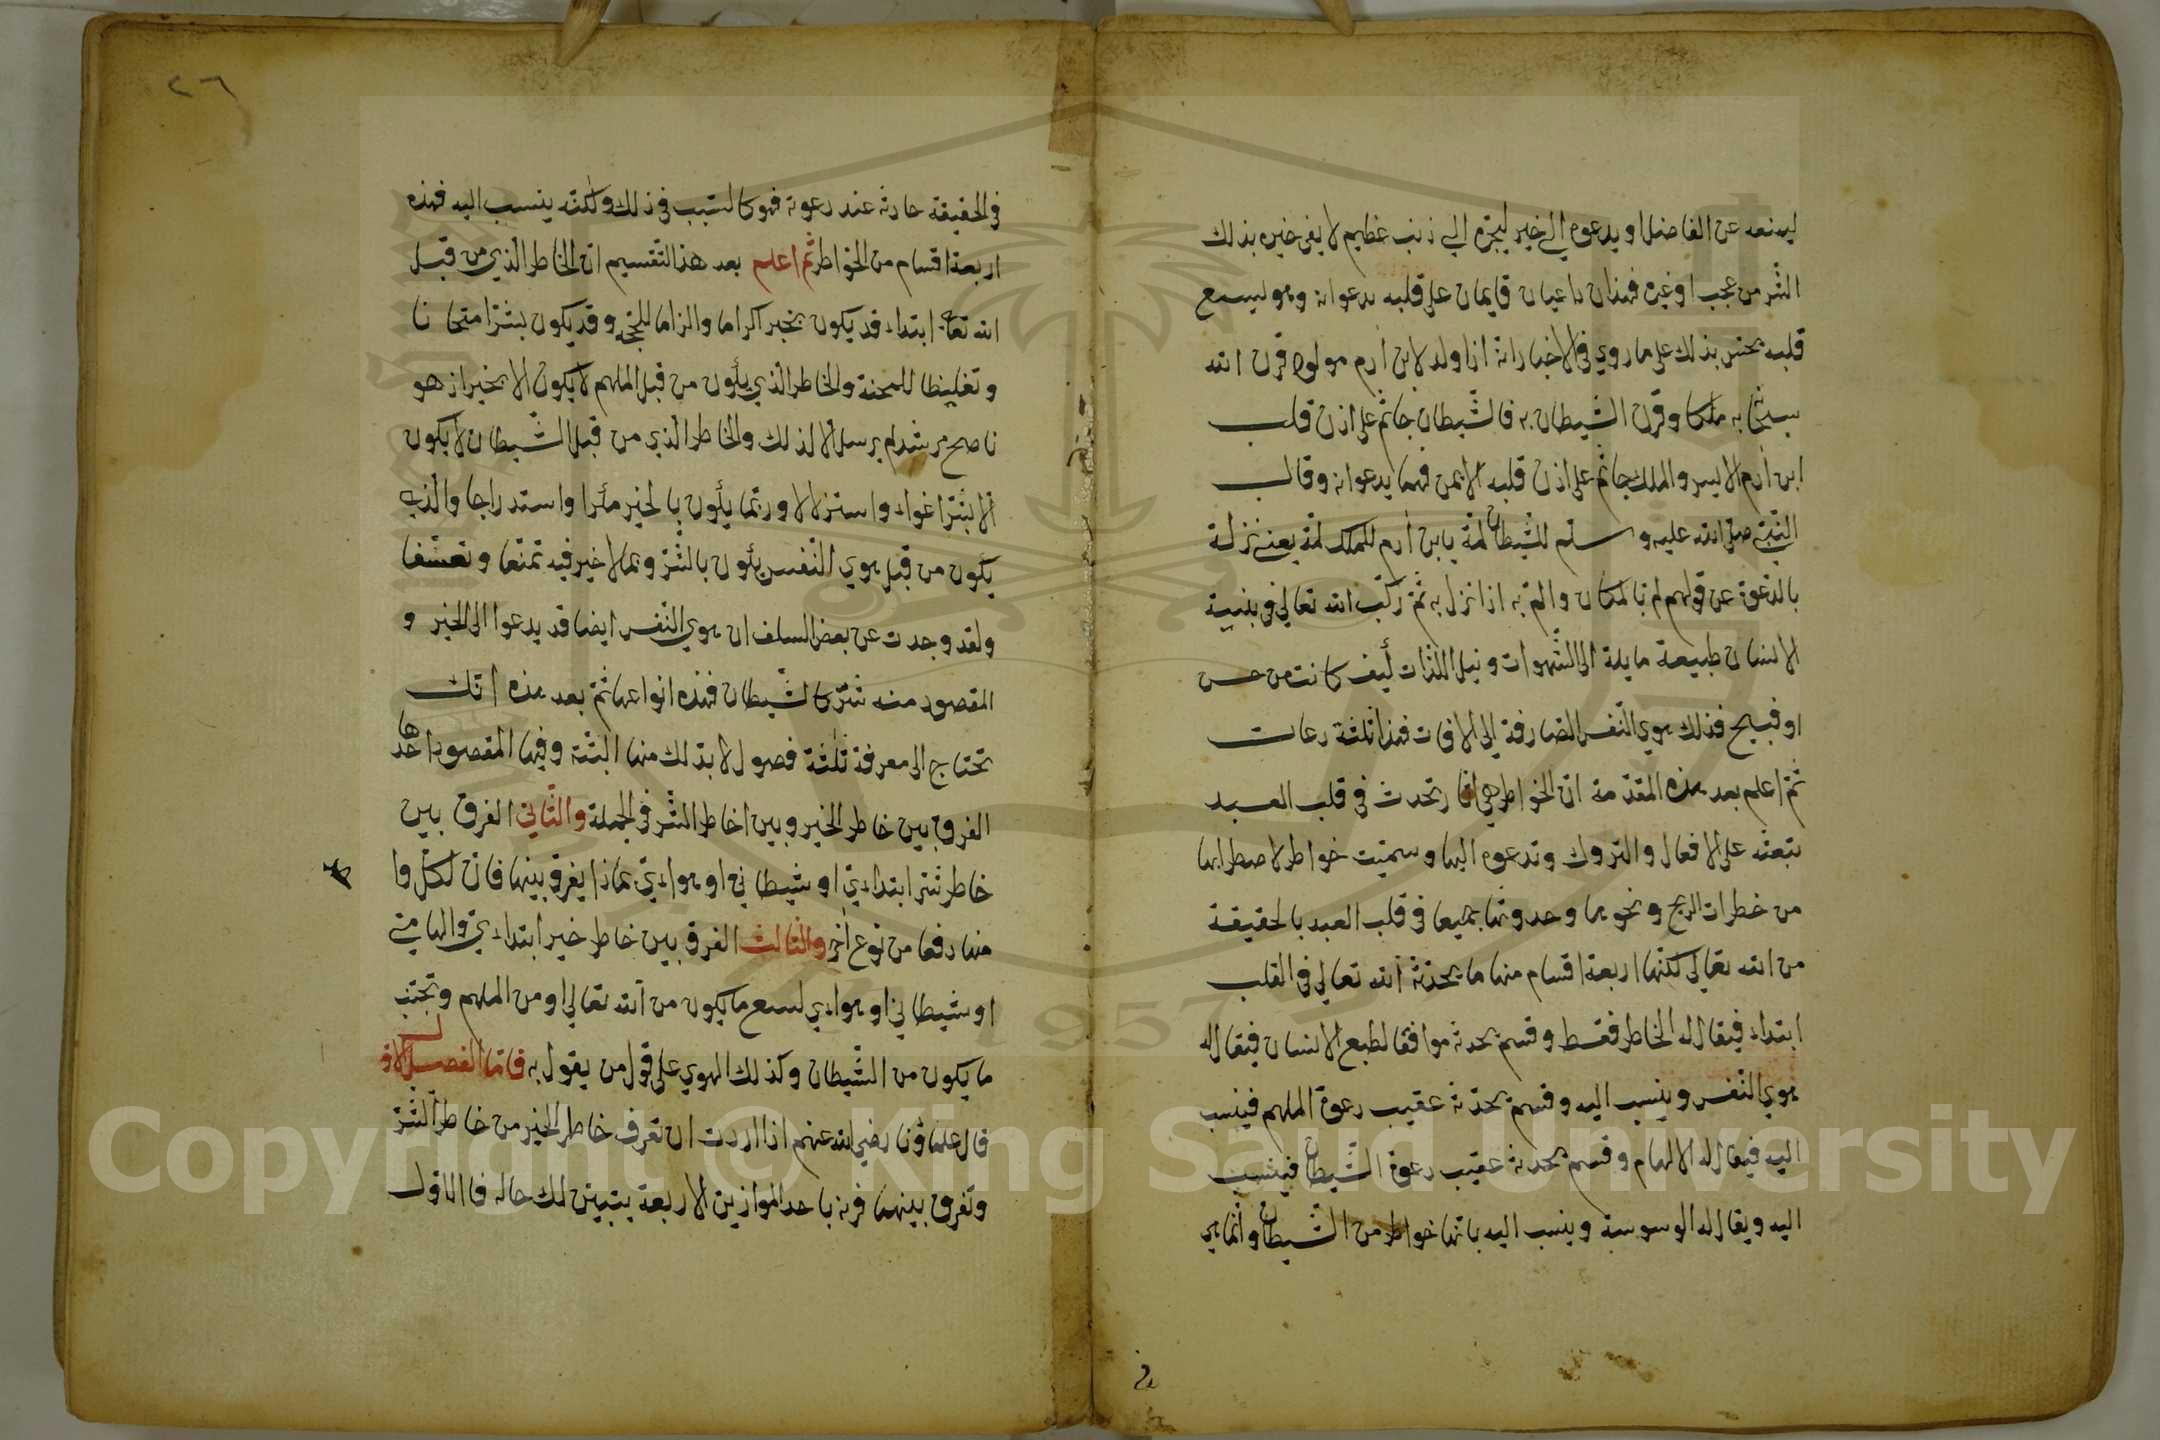 ليمنعه عن الفاضل او يدعوه الي خير ليجرّه الي ذنب عظيم لا يفي خيره بذلك
الشّر من عجب او غيره فهذان داعيان قايمان علي قلبه يدعوانه وهو يسمع
قلبه يحسّ بذلك علي ما روي في الاخبار انه اذا ولد لابن ادم مولود قرن الله
سبحانه به ملكا وقرن الشّيطان به فالشّيطان جاثم علي اذن قلب
ابن ادم الايسر والملك جاثم علي اذن قلبه الايمن فهما يدعوانه وقال
النّبيّ صلي الله عليه وسلم للشّيطان لمّة بابن ادم للملك لمّة يعني نزلة
بالدّعوة عن قولهم لمّ بالمكان والمّ به اذا نزل به ثمّ ركّب الله تعالي في بنية
الانسان طبيعة مايلة الي الشّهوات ونيل اللّذات كيف كانت من حسن
او قبيح فذلك هوي النّفس الصّارفة الي الافات فهذا ثلثة دعات
ثمّ اعلم بعد هذه المقدّمة انّ الخواطر هي اثار تحدث في قلب العبد
تبعثه علي الافعال والتروك وتدعوه اليها وسمّيت خواطر لاضطرابها
من خطرات الريح ونحوها وحدوثها جميعا في قلب العبد بالحقيقة
من الله تعالي لكنّها اربعة اقسام منها ما يحدثه الله تعالي في القلب
ابتداء فيقال له الخاطر فقط وقسم يحدثه موافقا لطبع الانسان فيقال له
هوي النّفس وينسب اليه وقسم يحدثه عقيب دعوة الملهم فينسب
اليه فيقال له الالهام وقسم يحدثه عقيب دعوة الشّيطان فينسب
اليه ويقال له الوسوسة وينسب اليه بانّها خواطر من الشّيطان وانّما هي
٢٦
في الحقيقة حادثة عند دعوته فهو كالسّبب في ذلك ولكنّه ينسب اليه فهذه
اربعة اقسام من الخواطر ثمّ اعلم بعد هذا التّقسيم انّ الخاطر الّذي من قبل
الله تعالي ابتداء قد يكون بخير اكراما والزاما للحجّة وقد يكون بشرّ امتحانا
وتغليظا للمحنة والخاطر الّذي يكون من قبل الملهم لا يكون الا بخير اذ هو
ناصح مرشد لم يرسل الا لذلك والخاطر الّذي من قبل الشّيطان لا يكون
الا بشرّ اغواء واستزلالا وربّما يكون بالخير مكرا واستدراجا والّذي
يكون من قبل هوي النّفس يكون بالشّرّ وبما لا خير فيه تمنّعا وتعسّفا
ولقد وجدت عن بعض السلف ان هوي النّفس ايضا قد يدعوا الي الخير و
المقصود منه شرّ كالشّيطان فهذه انواعها ثمّ بعد هذه انك
تحتاج الي معرفة ثلثة فصول لا بدّ لك منها البتّة وفيها المقصود احدها
الفرق بين خاطر الخير وبين خاطر الشّر في الجملة والثّاني الفرق بين
خاطر شرّ ابتدائيّ او شيطاني او هوائيّ بماذا يفرق بينها فانّ لكلّ وا
منها دفعا من نوع اخر والثالث الفرق بين خاطر خير ابتدائيّ والهاميّ
او شيطاني او هوائي لتتبع ما يكون من الله تعالي او من الملهم وتجتنب
ما يكون من الشّيطان وكذلك الهوي علي قول من يقول به فامّا الفصل الاول
قال علماؤنا رضي الله عنهم اذا اردت ان تعرف خاطر الخير من خاطر الشّرّ
وتفرق بينهما فزنه باحد الموازين الاربعة يتبيّن لك حاله فالاول
Copyright © King Saud University
1957